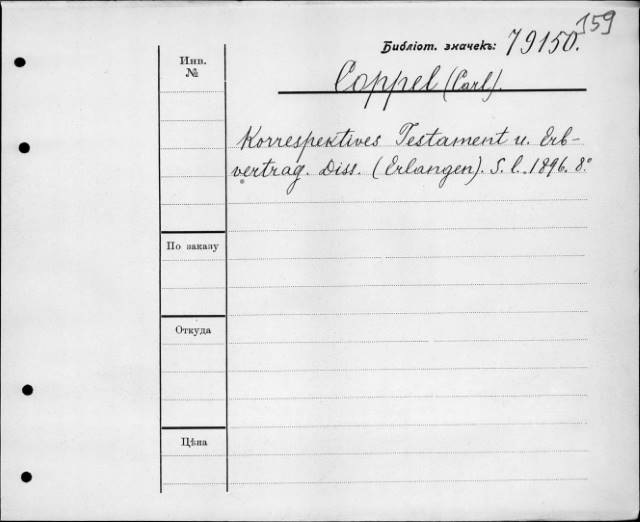 159
Библіот. значекъ: 79150.
Инв.
№
Coppel (Carl).
Korrespektives Testament u. Erb-
vertrag. Diss. (Erlangen). S. l. 1896. 8°
По заказу
Откуда
Цѣна